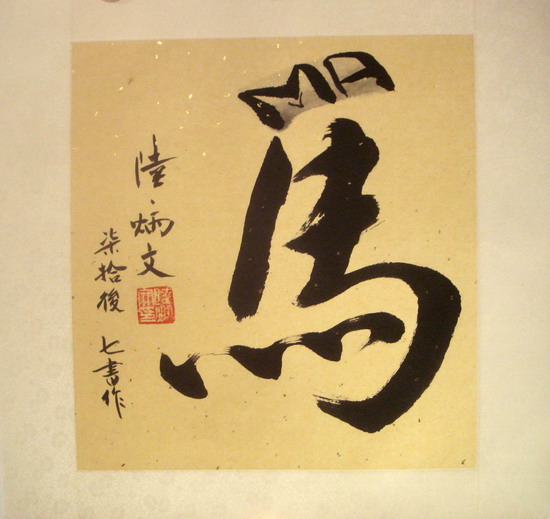 MA
馬
陸炳文
柒拾後 七書作